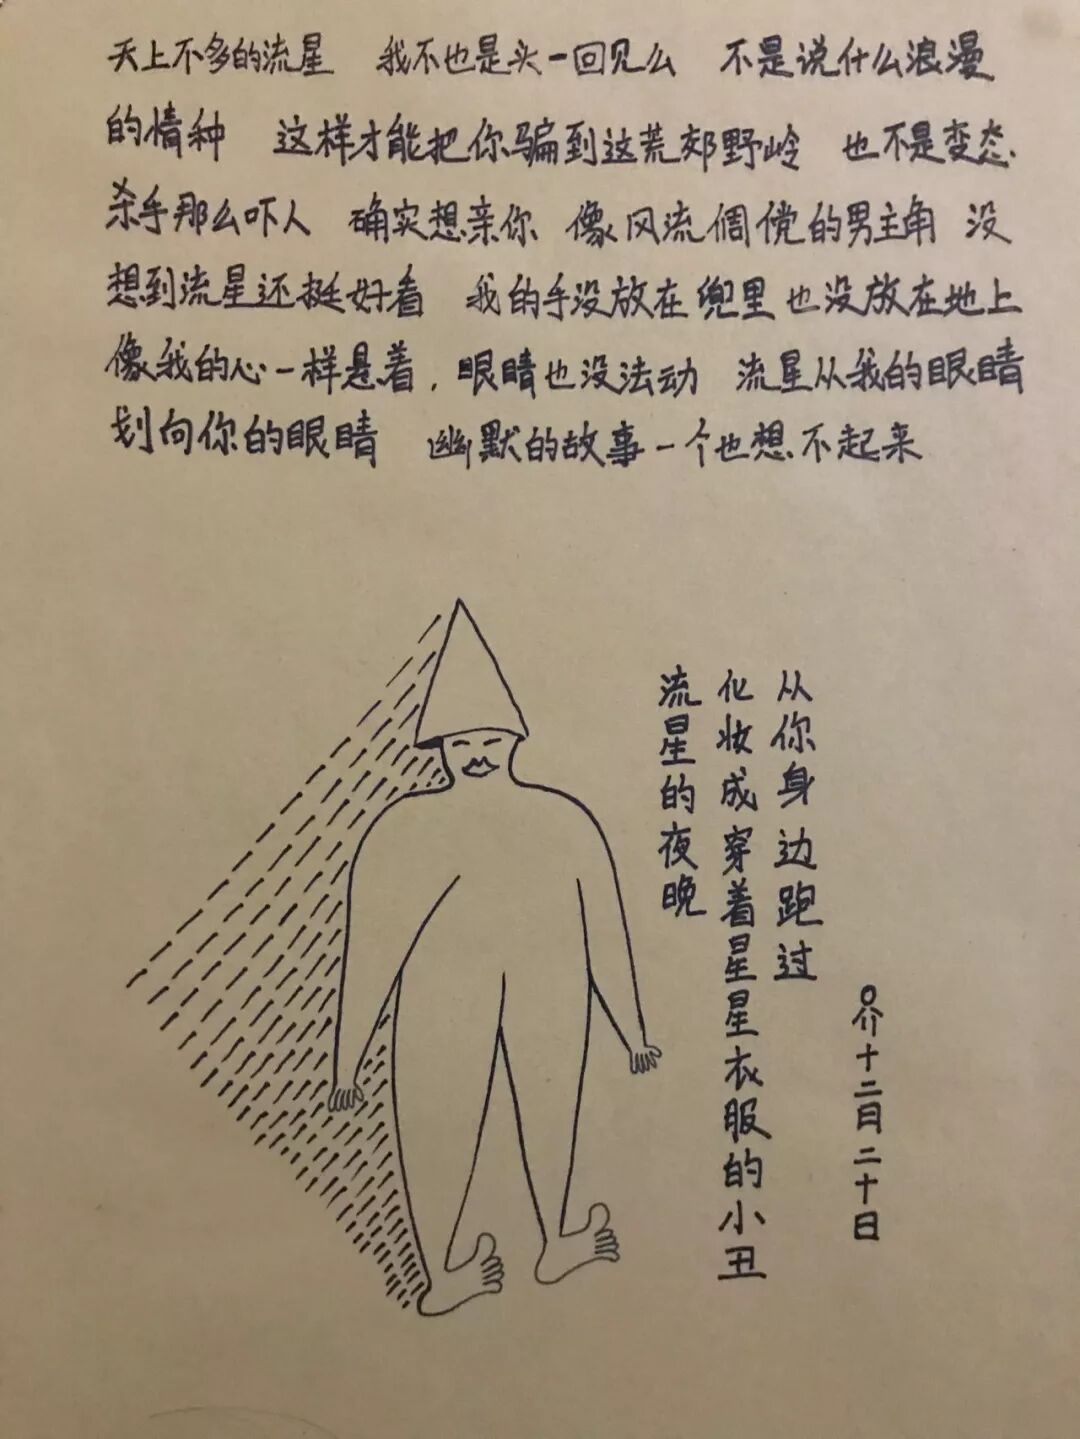 天上不多的流星 我不也是头一回见么 不是说什么浪漫
的情种 这样才能把你骗到这荒郊野岭 也不是变态
杀手那么吓人 确实想亲你 像风流倜傥的男主角 没
想到流星还挺好看 我的手没放在兜里也没放在地上
像我的心一样悬着，眼睛也没法动 流星从我的眼睛
划向你的眼睛 幽默的故事一个也想不起来
从你身边跑过
化妆成穿着星星衣服的小丑
流星的夜晚
十二月二十日